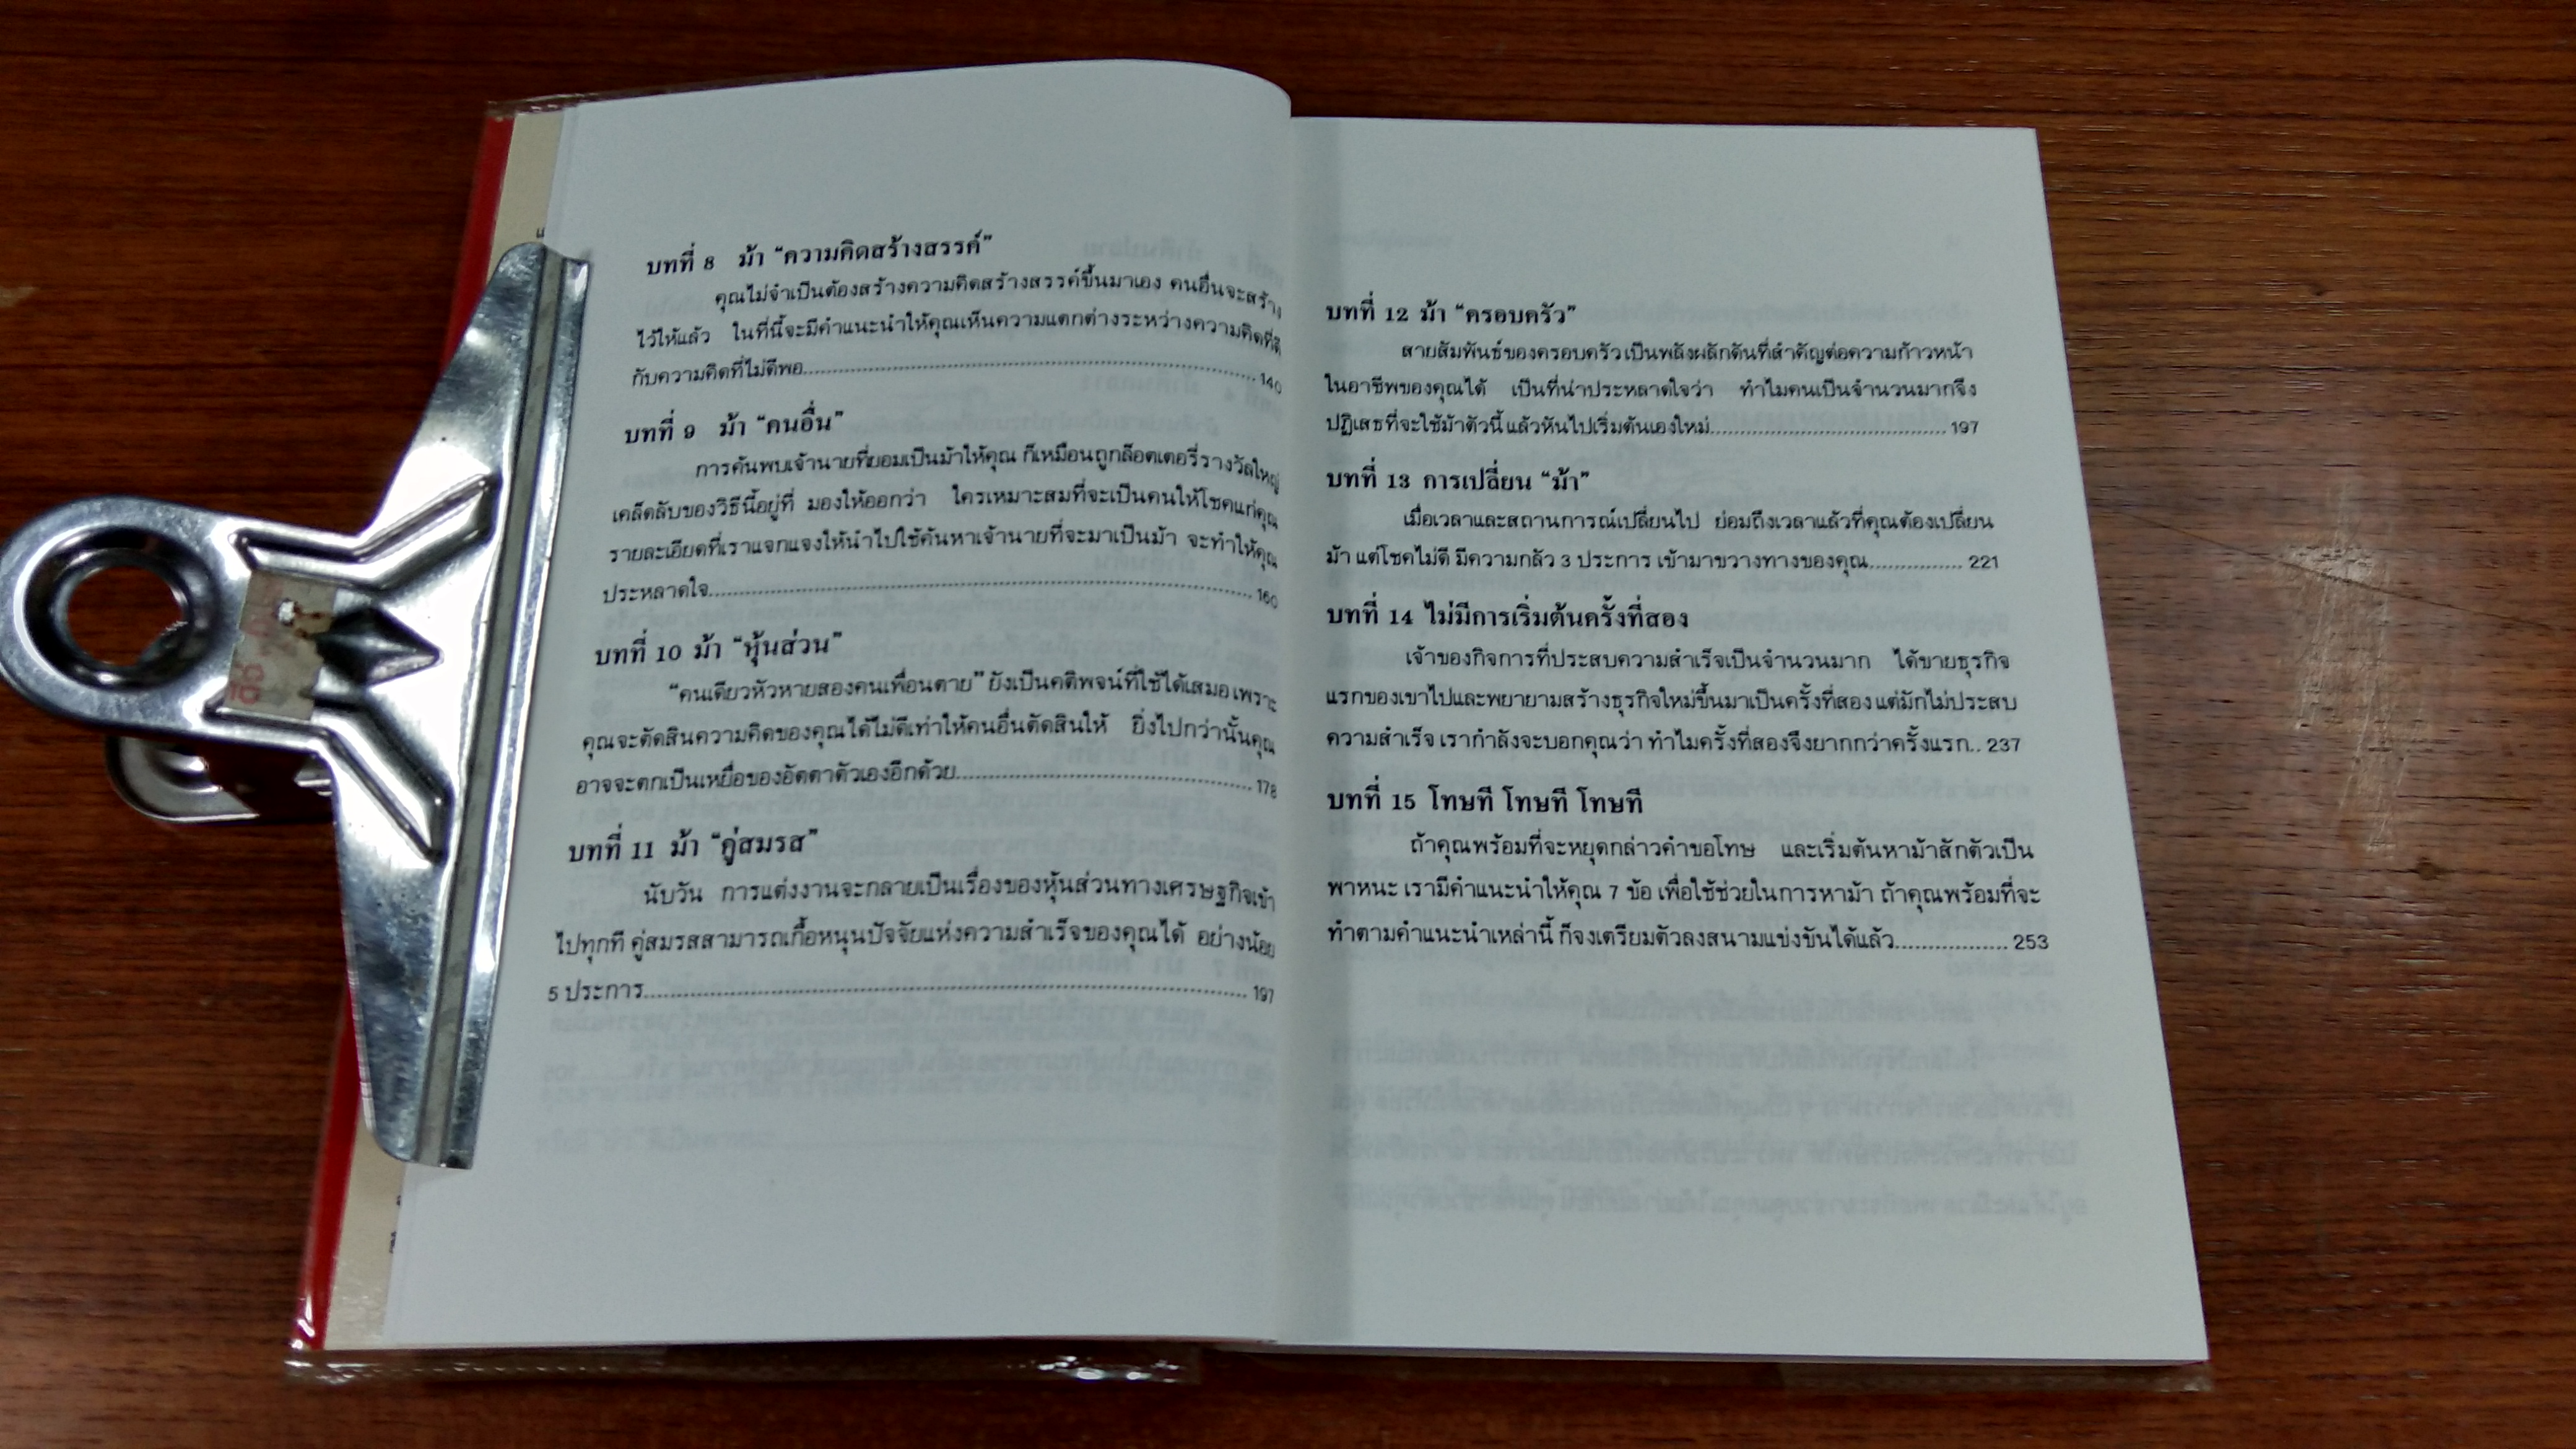 บทที่ 8 ม้า “ความคิดสร้างสรรค์”
คุณไม่จำเป็นต้องสร้างความคิดสร้างสรรค์ขึ้นมาเอง คนอื่นจะสร้าง
ไว้ให้แล้ว ในที่นี้จะมีคำแนะนำให้คุณเห็นความแตกต่างระหว่างความคิดที่ดี
กับความคิดที่ไม่ดีพอ.......... 140
บทที่ 9 ม้า “คนอื่น”
การค้นพบเจ้านายที่ยอมเป็นม้าให้คุณ ก็เหมือนถูกล็อตเตอรี่รางวัลใหญ่
เคล็ดลับของวิธีนี้อยู่ที่ มองให้ออกว่า ใครเหมาะสมที่จะเป็นคนให้โชคแก่คุณ
รายละเอียดที่เราแจกแจงให้นำไปใช้ค้นหาเจ้านายที่จะมาเป็นม้า จะทำให้คุณ
ประหลาดใจ.......... 160
บทที่ 10 ม้า “หุ้นส่วน”
“คนเดียวหัวหายสองคนเพื่อนตาย” ยังเป็นคติพจน์ที่ใช้ได้เสมอ เพราะ
คุณจะตัดสินความคิดของคุณได้ไม่ดีเท่าให้คนอื่นตัดสินให้ ยิ่งไปกว่านั้นคุณ
อาจจะตกเป็นเหยื่อของอัตตาตัวเองอีกด้วย.......... 178
บทที่ 11 ม้า “คู่สมรส”
นับวัน การแต่งงานจะกลายเป็นเรื่องของหุ้นส่วนทางเศรษฐกิจเข้า
ไปทุกที คู่สมรสสามารถเกื้อหนุนปัจจัยแห่งความสำเร็จของคุณได้ อย่างน้อย
5 ประการ.......... 197
บทที่ 12 ม้า “ครอบครัว”
สายสัมพันธ์ของครอบครัวเป็นพลังผลักดันที่สำคัญต่อความก้าวหน้า
ในอาชีพของคุณได้ เป็นที่น่าประหลาดใจว่า ทำไมคนเป็นจำนวนมากจึง
ปฏิเสธที่จะใช้ม้าตัวนี้ แล้วหันไปเริ่มต้นเองใหม่.......... 197
บทที่ 13 การเปลี่ยน “ม้า”
เมื่อเวลาและสถานการณ์เปลี่ยนไป ย่อมถึงเวลาแล้วที่คุณต้องเปลี่ยน
ม้า แต่โชคไม่ดี มีความกลัว 3 ประการ เข้ามาขวางทางของคุณ.......... 221
บทที่ 14 ไม่มีการเริ่มต้นครั้งที่สอง
เจ้าของกิจการที่ประสบความสำเร็จเป็นจำนวนมาก ได้ขายธุรกิจ
แรกของเขาไปและพยายามสร้างธุรกิจใหม่ขึ้นมาเป็นครั้งที่สอง แต่มักไม่ประสบ
ความสำเร็จ เรากำลังจะบอกคุณว่า ทำไมครั้งที่สองจึงยากกว่าครั้งแรก.. 237
บทที่ 15 โทษที โทษที โทษที
ถ้าคุณพร้อมที่จะหยุดกล่าวคำขอโทษ และเริ่มต้นหาม้าสักตัวเป็น
พาหนะ เรามีคำแนะนำให้คุณ 7 ข้อ เพื่อใช้ช่วยในการหาม้า ถ้าคุณพร้อมที่จะ
ทำตามคำแนะนำเหล่านี้ ก็จงเตรียมตัวลงสนามแข่งขันได้แล้ว.......... 253